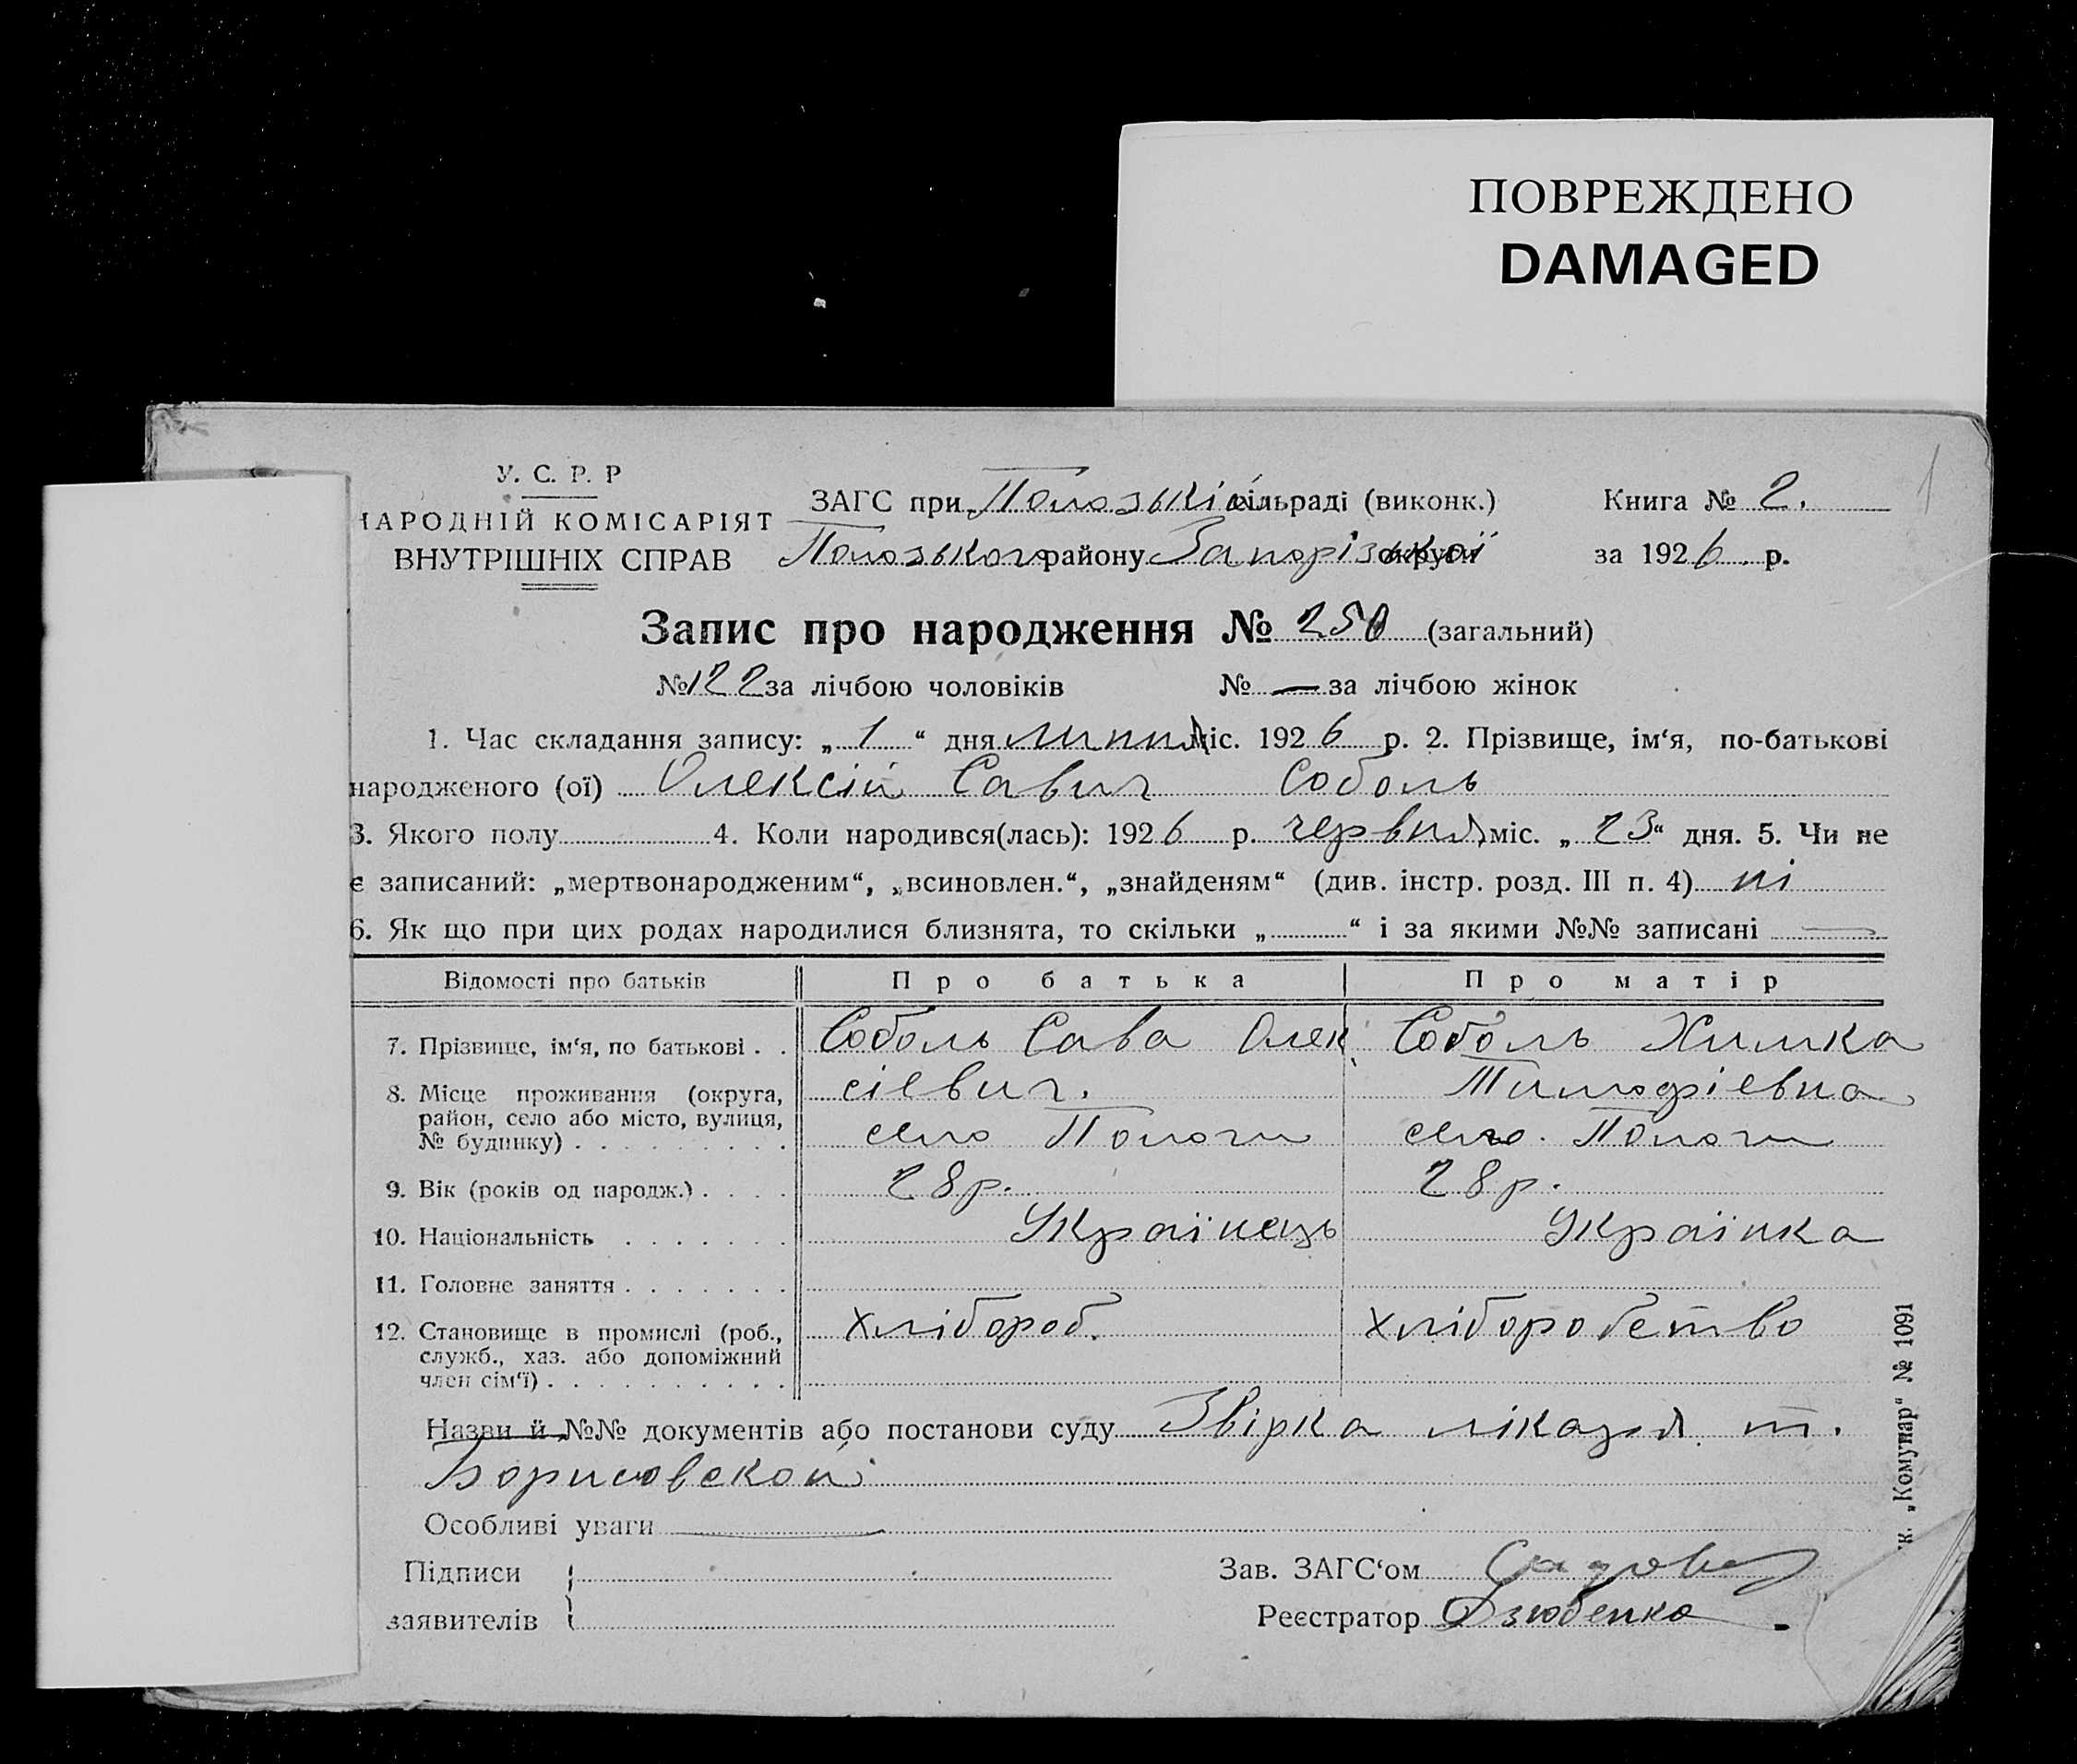 ПОВРЕЖДЕНО
DAMAGED
1
У. С. Р. Р
НАРОДНІЙ КОМІСАРІЯТ
ВНУТРІШНІХ СПРАВ
ЗАГС при Пологській сільраді (виконк.)
Пологського району Запорізької округи
Книга № 2.
за 1926 р.
Запис про народження № 250 (загальний)
№ 122 за лічбою чоловіків № — за лічбою жінок
1. Час складання запису: „ 1 “ дня липня міс. 1926 р. 2. Прізвище, ім‘я, по-батькові
народженого (ої) Олексій Савич Соболь
3. Якого полу 4. Коли народився(лась): 1926 р. червня міс. „ 23 “ дня. 5. Чи не
є записаний: „мертвонародженим“, „всиновлен.“, „знайденям“ (див. інстр. розд. III п. 4) ні
6. Як що при цих родах народилися близнята, то скільки „ “ і за якими №№ записані —
Відомості про батьків Про батька Про матір
7. Прізвище, ім‘я, по батькові . . Соболь Сава Олек Соболь Химка
8. Місце проживання (округа, сіевич. Тимофіевна
район, село або місто, вулиця,
№ будинку) село Пологи село Пологи
9. Вік (років од народж.) 28 р. 28 р.
10. Національність Українець Українка
11. Головне заняття
12. Становище в промислі (роб., хлібороб. хліборобство
служб., хаз. або допоміжний
член сім‘ї)
Назви й №№ документів або постанови суду Звірка лікаря т.
Борисовской
Особливі уваги —
Підписи
заявителів
Зав. ЗАГС‘ом
Реєстратор Дзюбенко
к. „Комунар“ № 1091